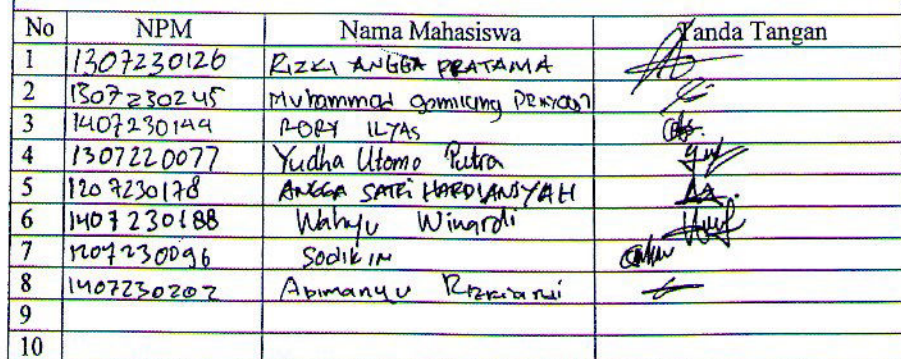 No NPM Nama Mahasiswa Tanda Tangan
1 1307230126 RIZKI ANGGA PRATAMA
2 1307230245 Muhammad
3 1407230144 RORY ILYAS
4 1307220077 Yudha Utomo Putra
5 1207230178 ANGGA SATRI HARDIANSYAH
6 1407230188 Wahyu Winardi
7 1207230096 SODIKIN
8 1407230202 Abimanyu
9
10